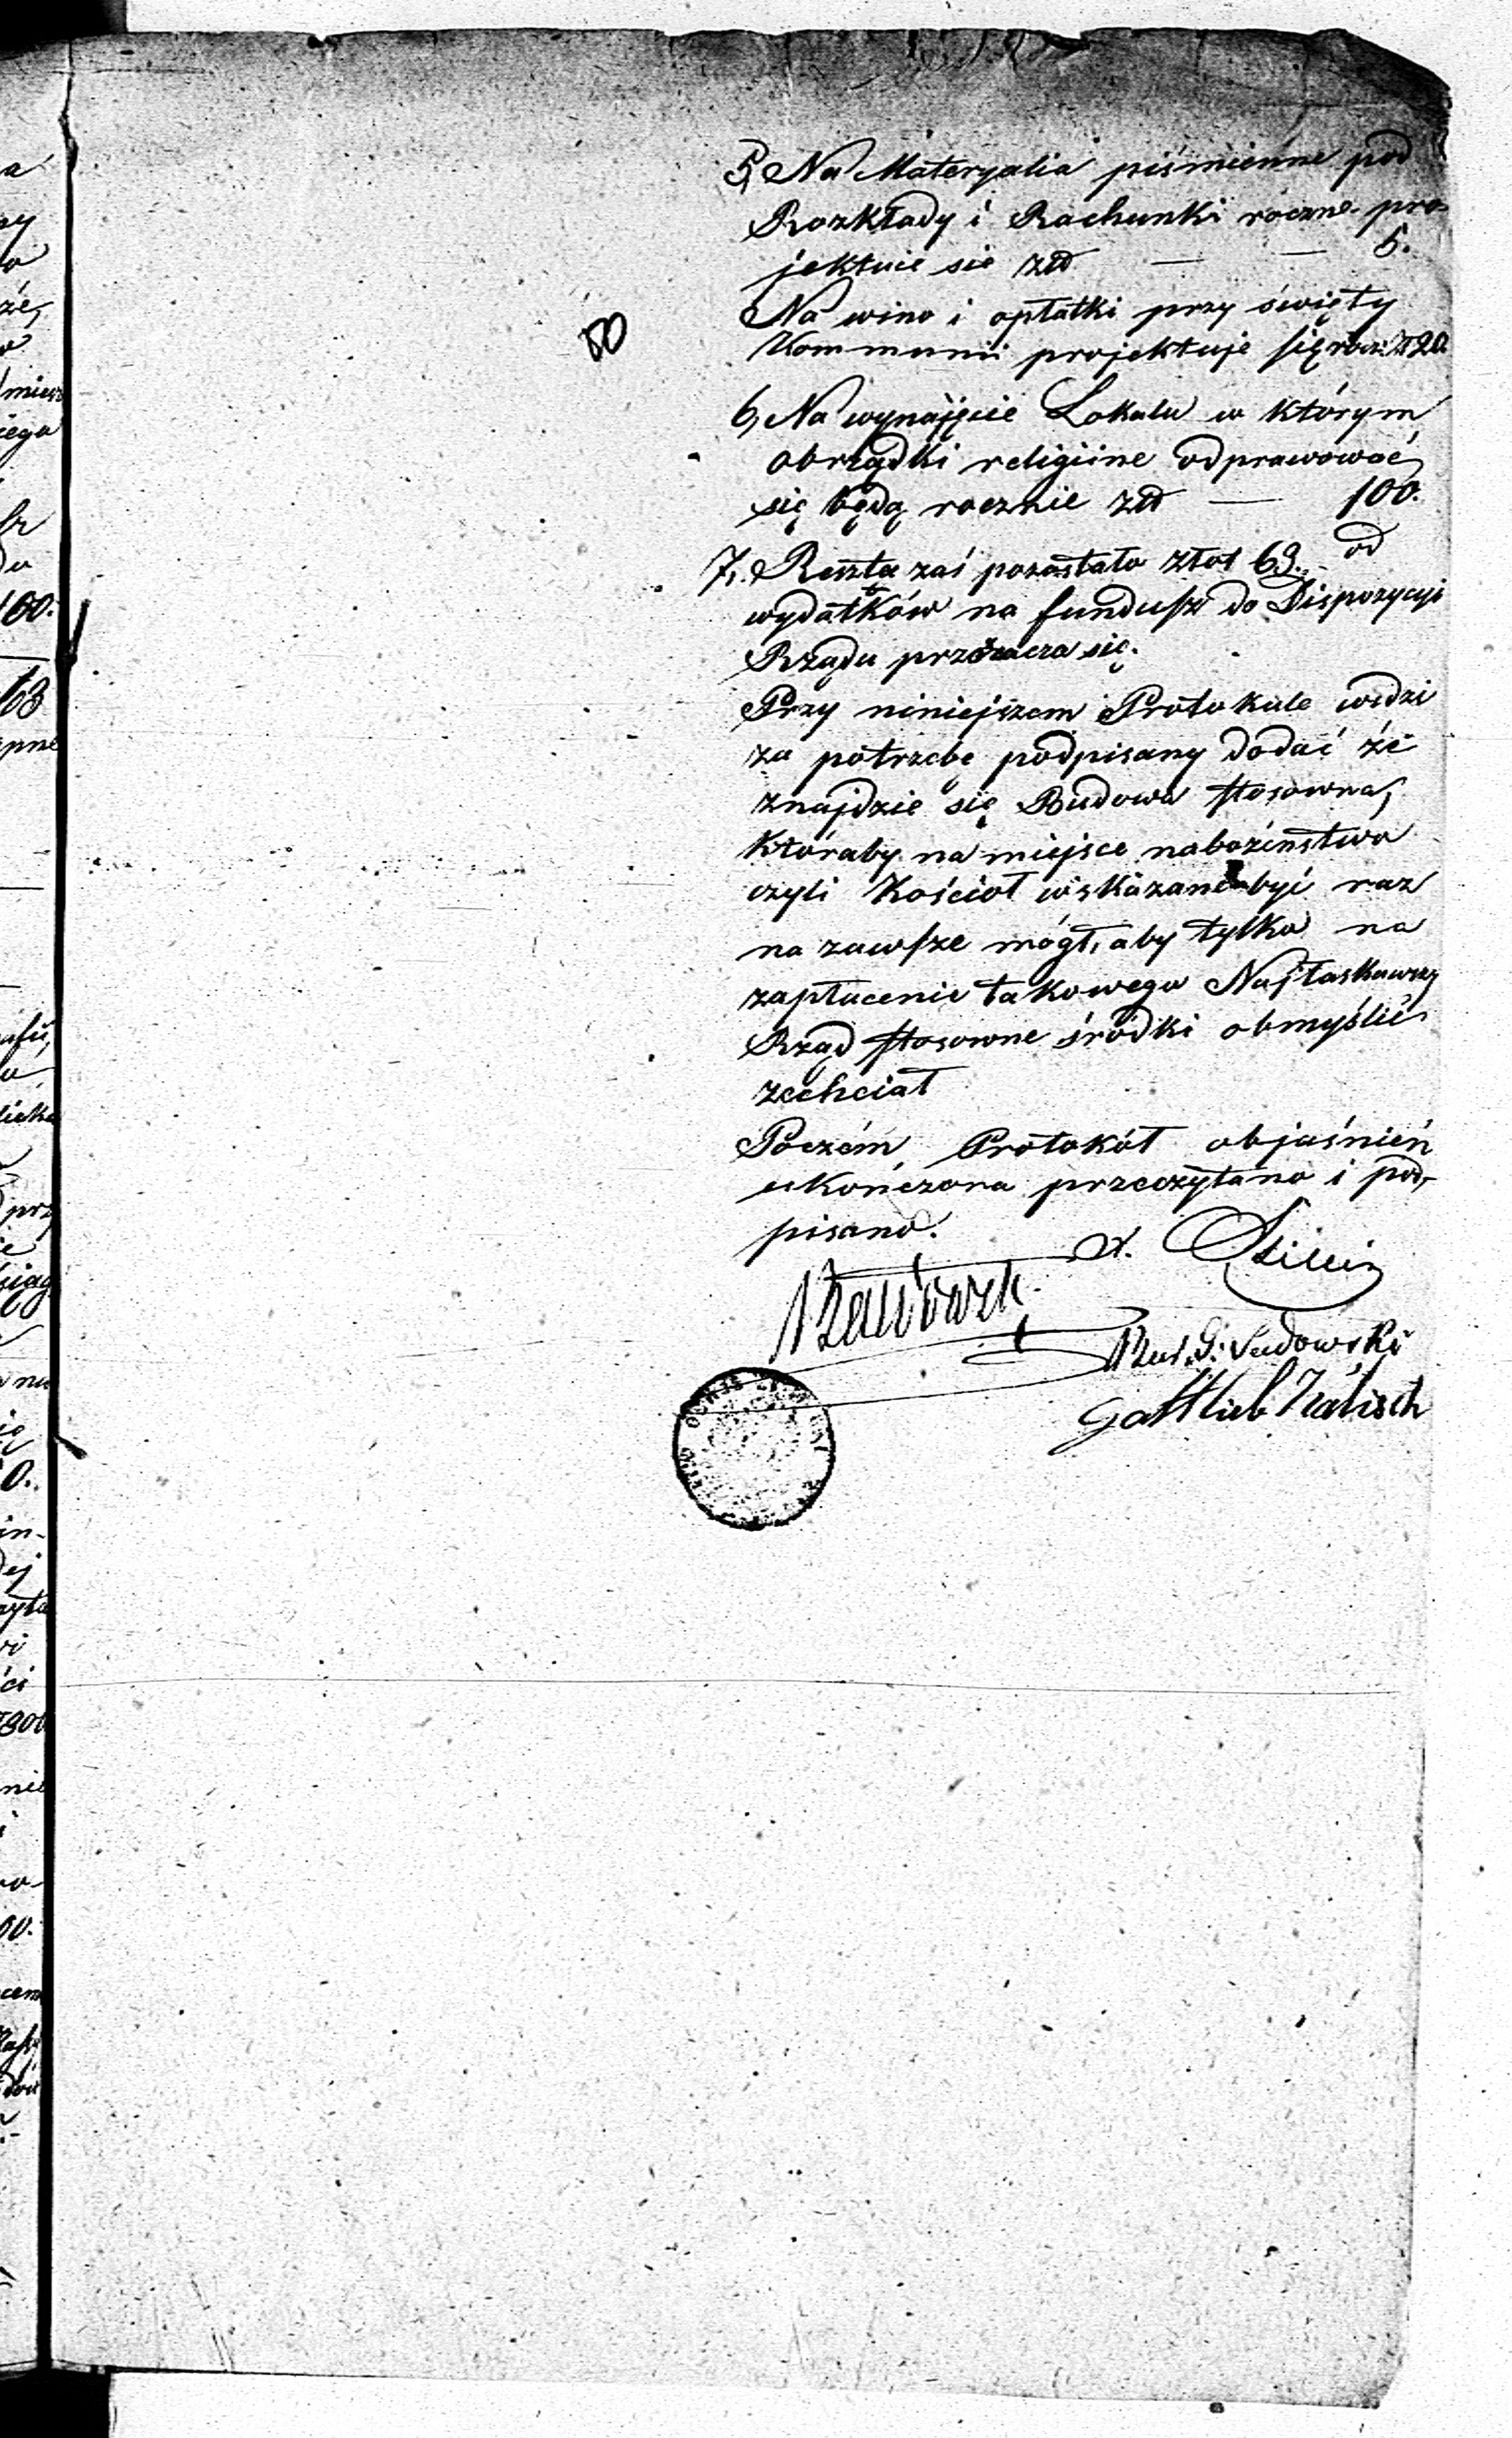 5, Na Materyalia piśmienne pod
Rozkłady i Rachunki roczne pro-
jektuie sie złł — — 5.
Na wino i opłatki przy święty
Kommunii projektuje się rocz: zł 20
80
6, Na wynajęcie Lokalu w którym
obrządki religiine odprawować
się będą rocznie złł — 100.
7, Reszta zaś pozostało złot 63. od
wydatków na fundusz do Dispozycyi
Rządu przeznacza się.
Przy niniejszem Protokule widzi
za potrzebę podpisany dodać że
znajdzie się Budowa stosowna,
któraby na miejsce nabożeństwa
czyli Kościoł wskazane być raz
na zawsze mógł, aby tylko na
zapłacenie takowego Najłaskawszy
Rząd stosowne środki obmyślić
zechciał
Poczém Protokół objaśnień
ukończono przeczytano i pod-
pisano.
G: Sadowski
Gottlieb